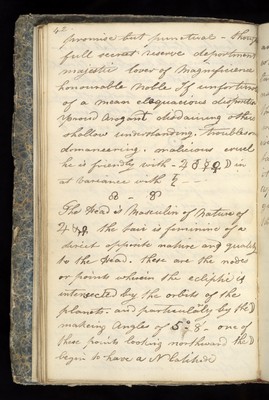 42
promise but punctual - though
full secret reserve deportment
majestic lover of Magnificence
honourable Noble If unfortunate
of a mean eloquacious disposition
proud Arogant disdaining others
shallow understanding. troublesom
domaneering. malicious cruel
he is friendly with - ♃ ♂ ☿ ♀ ☽ is
at variance with ♄ -
☊ - ☋
The Head is Masculin of Nature of
♃ & ♀ the tail is feminine of a
direct opposite nature and quality
to the Head. these are the nodes
or points wherein the ecliptic is
intersected by the orbits of the
planets. and particulaty by the ☽
making Angles of 5°: 8. one of
these points looking northward the ☽
begin to have a N latitude